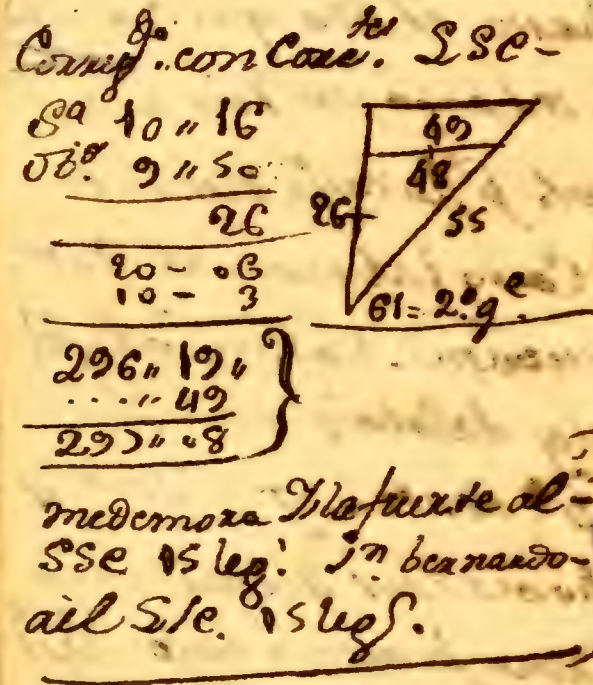 Corrigdo. con Corrtes. SSe-
Sa 10 " 16
Obo. 9 " 50
26
20 - 06
10 - 3
296 " 19 "
.... " 49
297 " 08
49
48
26
55
61 = 2.o g.e
me demora Isla fuerte al-
SSe 15 leg.s Sn bernardo-
ael S/e. 15 legs.